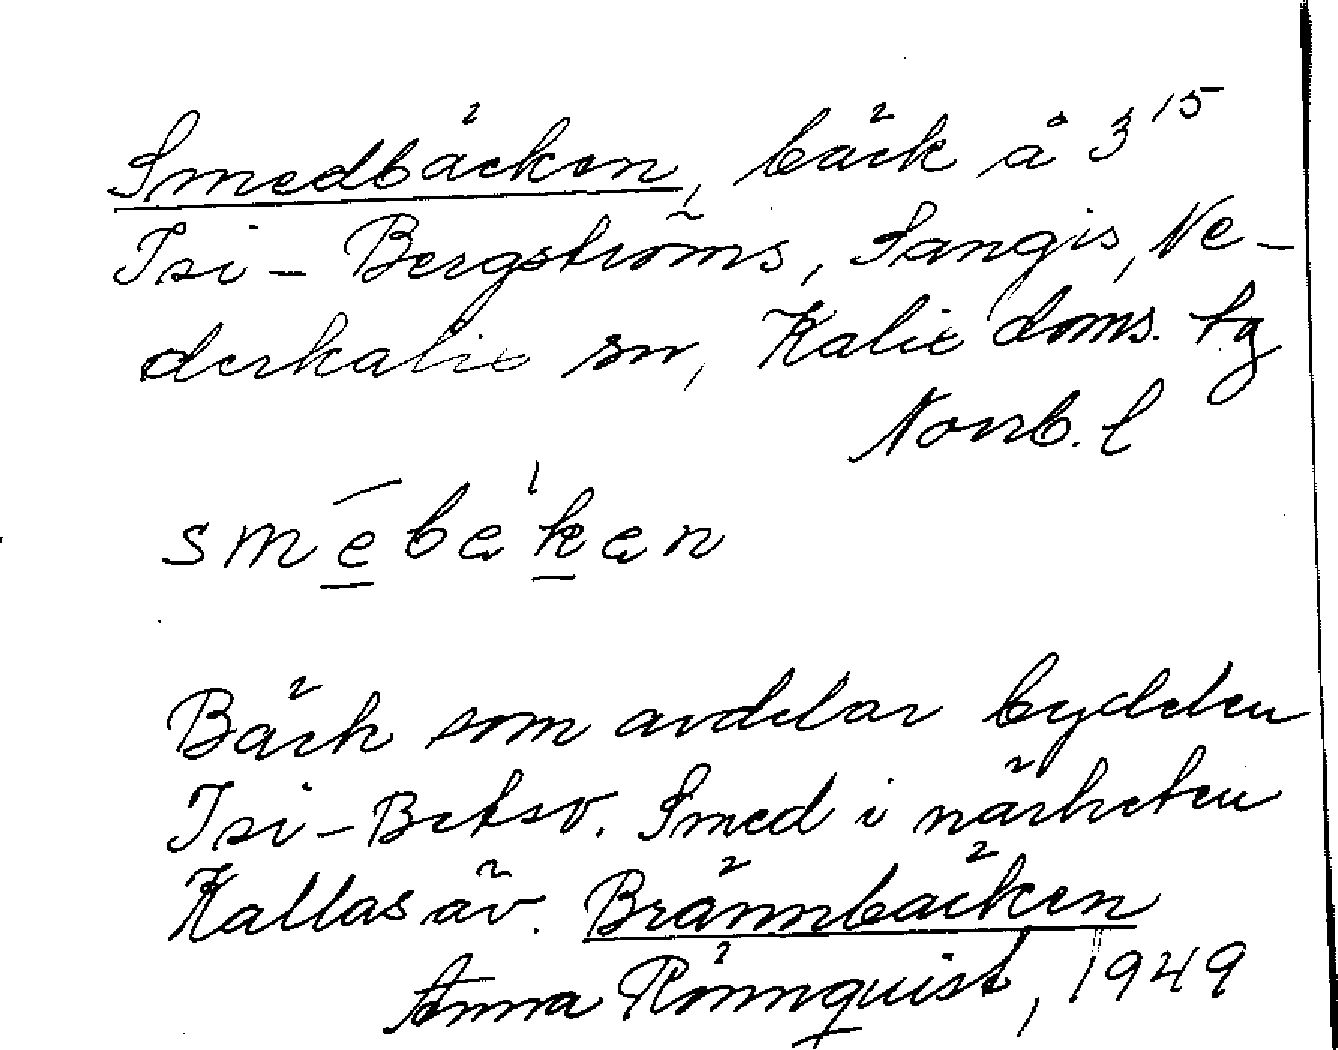 Smedbäcken, bäck å 3¹⁵
Isi-Bergströms, Sangis, Ne-
derkalix sn, Kalix doms. tg
Norrb. l
smebekən
Bäck som avdelar bydelen
Isi-Betsv. Smed i närheten
Kallas äv. Brännbäcken
Anna Rönnquist, 1949